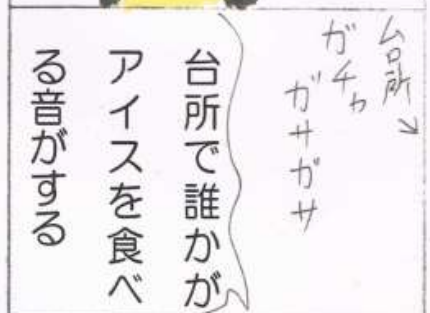 台所↘
ガチャ
ガサガサ
台所で誰かが
アイスを食べ
る音がする